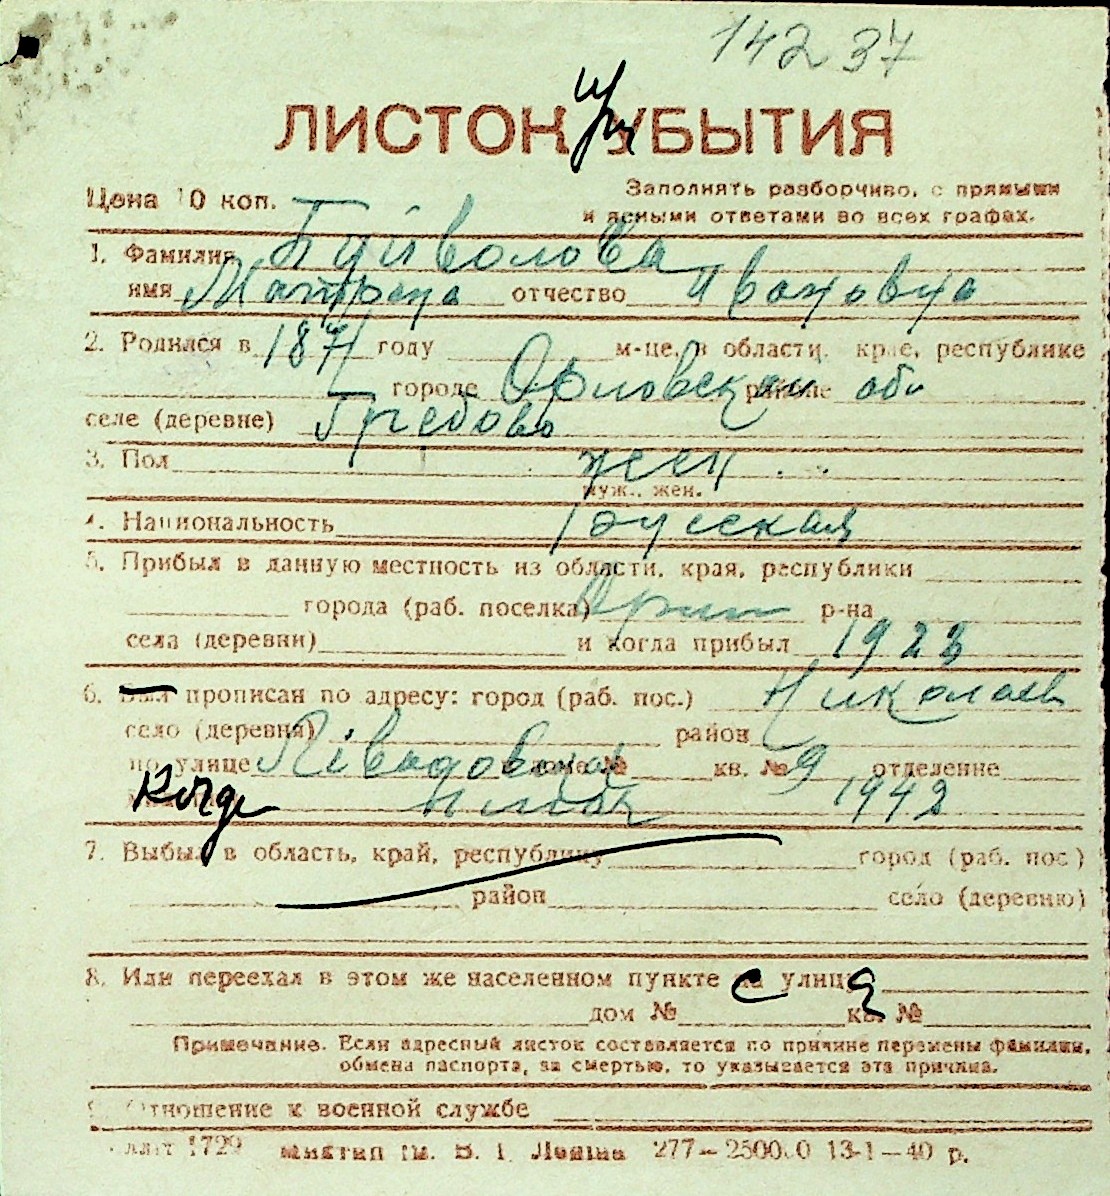 14237
ЛИСТОК УБЫТИЯ
При
Цена 10 коп.
Заполнять разборчиво, с прямыми
и ясными ответами во всех графах.
1. Фамилия Буйволова
имя Матрена отчество Ивановна
2. Родился в 1871 году м-це, в области, крае, республике
городе Орловской районе обл
селе (деревне) Гребово
3. Пол жен
муж., жен.
4. Национальность русская
5. Прибыл в данную местность из области, края, республики
города (раб. поселка) р-на
села (деревни) и когда прибыл 1923
6. Был прописан по адресу: город (раб. пос.) Николаев
село (деревня) район
по улице Лівадовская дом № кв. № 9 отделение
Когда 1942
7. Выбыл в область, край, республику город (раб. пос.)
район село (деревню)
8. Или переехал в этом же населенном пункте с улицы
дом № кв. №
Примечание. Если адресный листок составляется по причине перемены фамилии,
обмена паспорта, за смертью, то указывается эта причина.
9. Отношение к военной службе
1729 Ленина 277—250000 13-1—40 р.